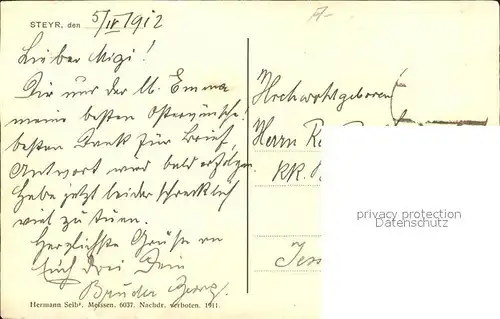 STEYR, den 5/IV 1912
Lieber Migi!
Dir und der M. Emma
meine besten Osterwünsche!
besten Dank für Brief,
Antwort wird bald erfolgen.
Habe jetzt leider schrecklich
viel zu tuen.
Herzlichste Grüße an
Euch drei Dein
Bruder Georg.
Hochwohlgeboren
Herrn
KK.
privacy protection
Datenschutz
Hermann Seibt, Meissen. 6037. Nachdr. verboten. 1911.